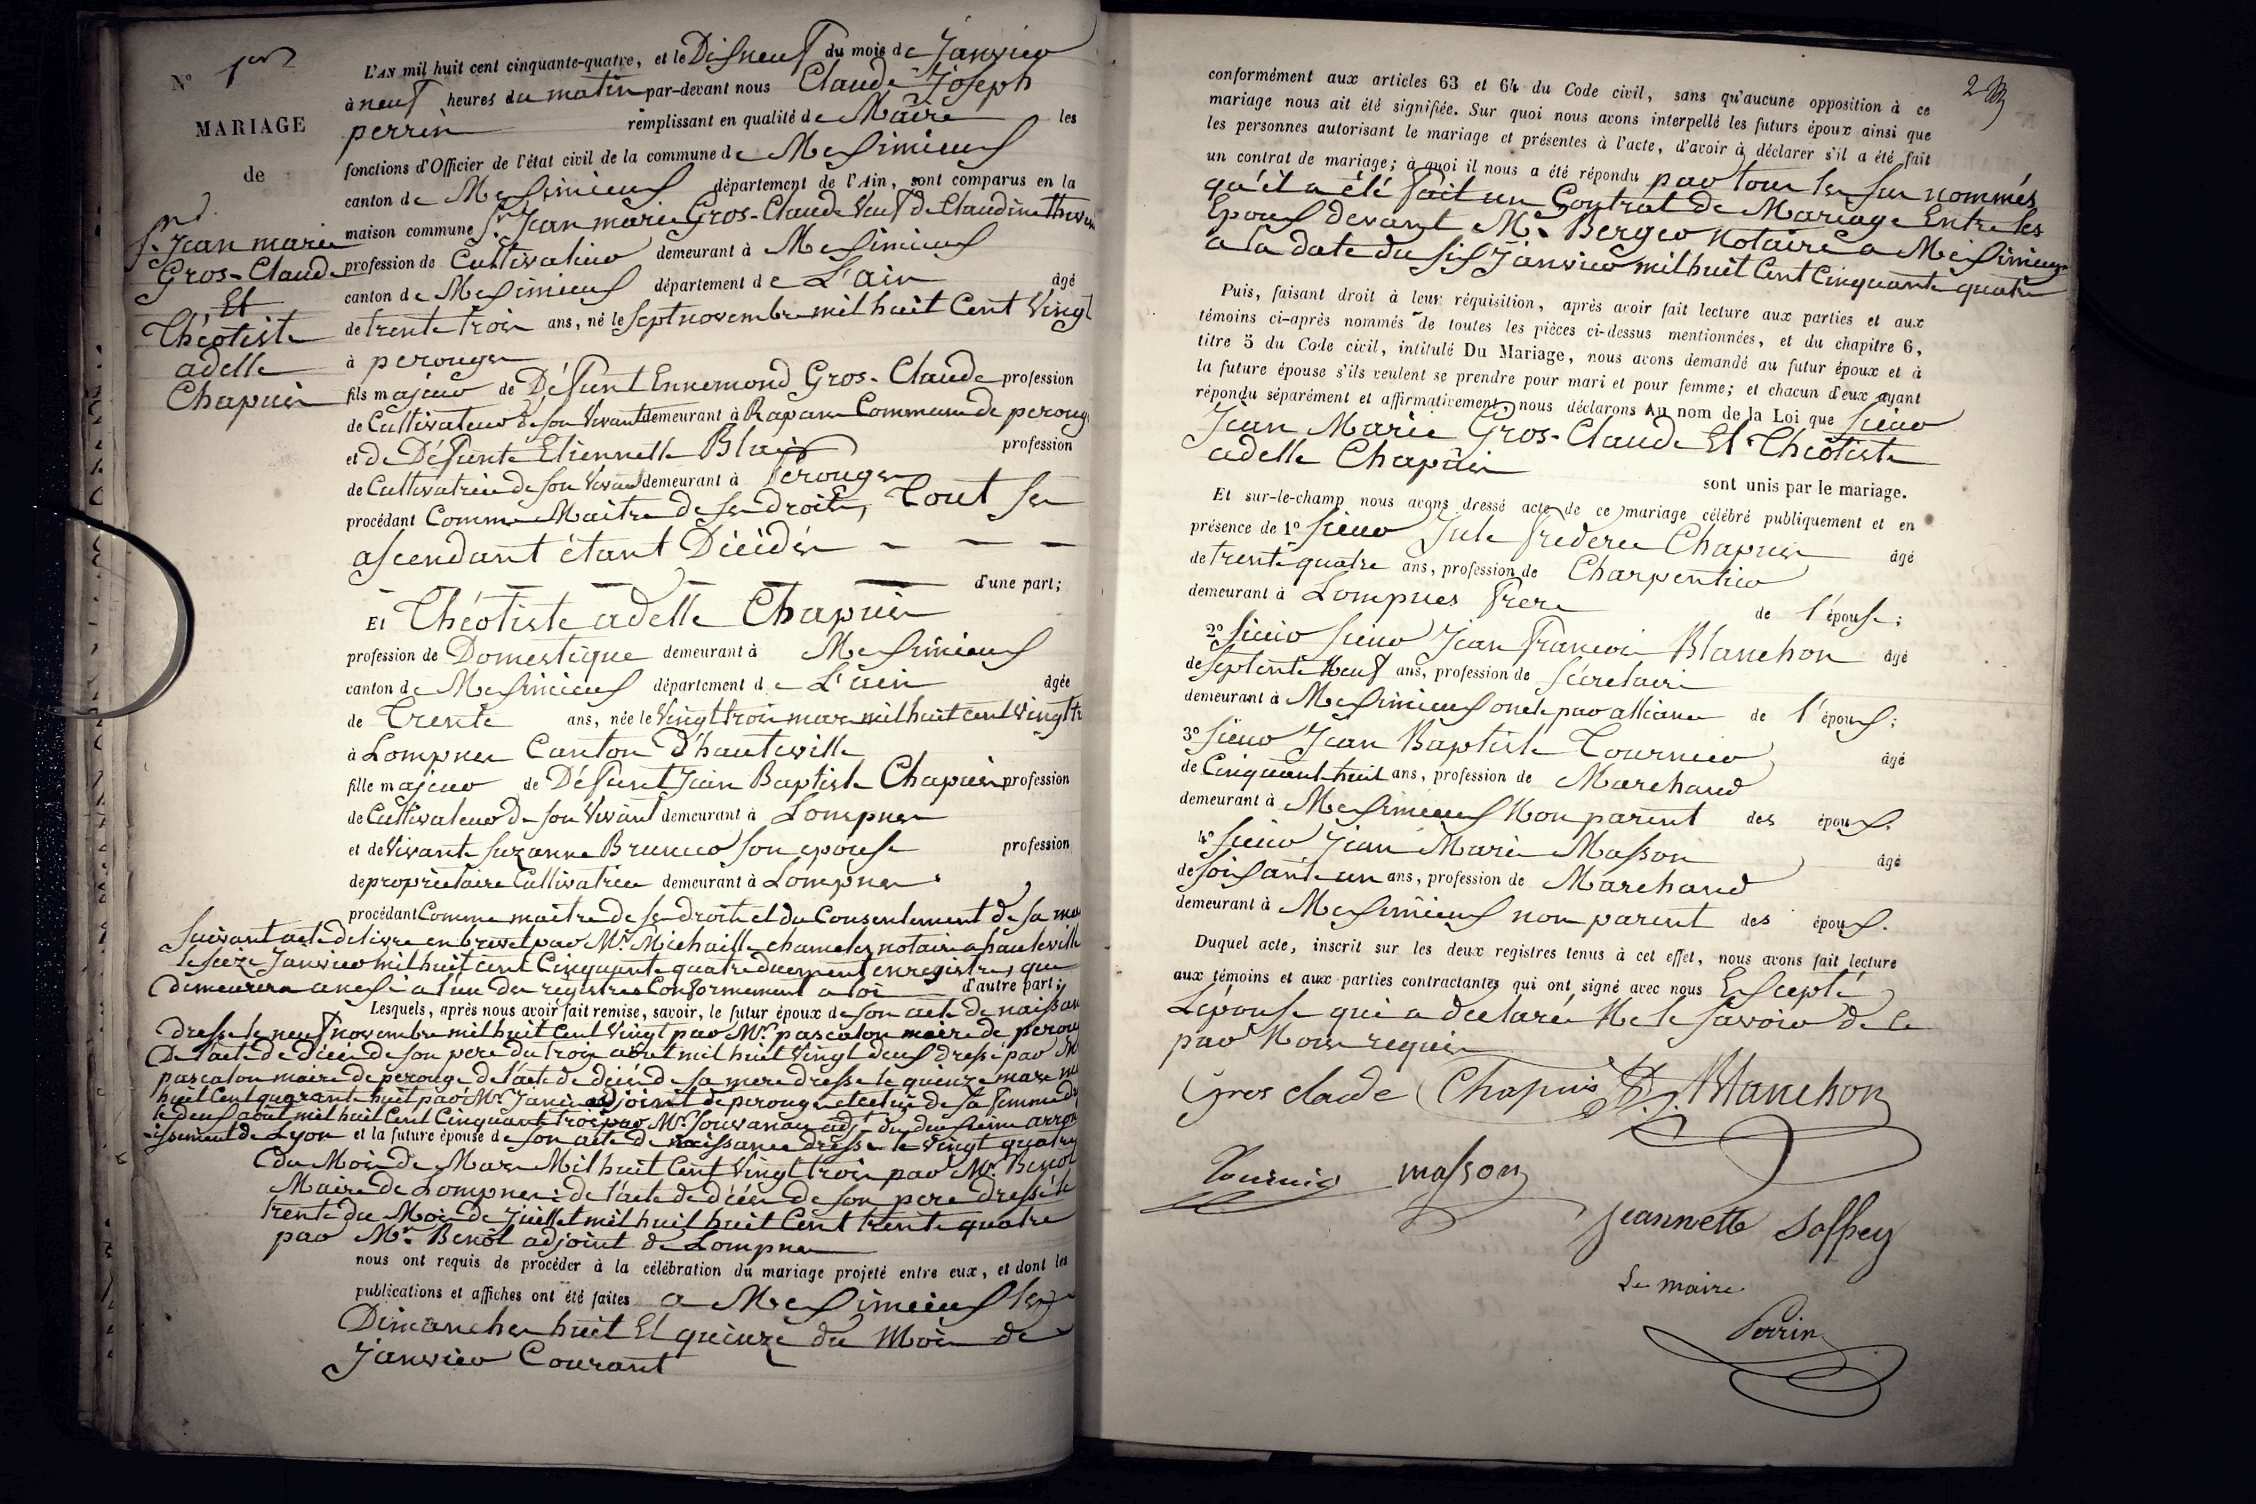 N° 1er
MARIAGE
de
Sr Jean marie
Gros-Claude
Et
Théotiste
adelle
Chapuis
L'AN mil huit cent cinquante-quatre, et le Disneuf du mois de Janvier
à neuf heures du matin par-devant nous Claude Joseph
perrin remplissant en qualité de Maire les
fonctions d'Officier de l'état civil de la commune de Meximieux
canton de Meximieux département de l'Ain, sont comparus en la
maison commune Sr Jean marie Gros-Claude Veuf de Claudine
profession de Cultivateur demeurant à Meximieux
canton de Meximieux département de L'ain âgé
de trente trois ans, né le sept novembre mil huit Cent Vingt
à perouges
fils majeur de Défunt Ennemond Gros-Claude profession
de Cultivateur de son Vivant demeurant à Rapan Commune de peroug
et de Défunte Etiennette Blain profession
de Cultivatrice de son Vivant demeurant à Perouges
procédant Comme Maitre de ses droits, Tout ses
ascendant étant Décédés
d'une part;
Et Théotiste adelle Chapuis
profession de Domestique demeurant à Meximieux
canton de Meximieux département de L'ain âgée
de Trente ans, née le Vingt trois mars mil huit cent Vingt tr
à Lompnes Canton D'hauteville
fille majeur de Défunt Jean Baptiste Chapuis profession
de Cultivateur de son Vivant demeurant à Lompnes
et de Vivante Suzanne Brunier son epouse profession
de propriétaire Cultivatrice demeurant à Lompnes
procédant Comme maitre de ses droits et du Consentement de sa me
suivant acte délivré en brevet par Mr Michaille chamelet notaire a hauteville
le seize Janvier mil huit cent Cinquante quatre duement enregistré, qui
demeurera anexé a l'un des registres Conformément a loi d'autre part;
Lesquels, après nous avoir fait remise, savoir, le futur époux de son acte de naissan
dressé le neuf novembre mil huit Cent Vingt par Mr pascalon maire de peroug
De l'acte de décés de son pere du trois aout mil huit Vingt deux dressé par M
pascalon maire de perouge de l'acte de décés de sa mere dresse le quinze mars m
huit Cent quarante huit par Mr Janin adjoint de perouge et celui de sa femme
le deux août mil huit Cent Cinquante trois par Mr Jouvanau adjt du deuxieme arron
issement de Lyon et la future épouse de son acte de naissance dressé le Vingt quatre
du Mois de Mars Mil huit Cent Vingt trois par Mr Benoit
Maire de Lompnes; de l'acte de décés de son pere dressé le
trente du Mois de Juillet mil huit huit Cent trente quatre
par Mr Benoit adjoint de Lompnes
nous ont requis de procéder à la célébration du mariage projeté entre eux, et dont les
publications et affiches ont été faites a Meximieux les
Dimanches huit Et quinze du Mois de
Janvier Courant
2
conformément aux articles 63 et 64 du Code civil, sans qu'aucune opposition à ce
mariage nous ait été signifiée. Sur quoi nous avons interpellé les futurs époux ainsi que
les personnes autorisant le mariage et présentes à l'acte, d'avoir à déclarer s'il a été fait
un contrat de mariage; à quoi il nous a été répondu par tous les sus nommés
qu'il a été fait un Contrat de Mariage Entre les
Epoux devant Me Berger Notaire a Meximieux
a la date du six Janvier mil huit Cent Cinquante quatre
Puis, faisant droit à leur réquisition, après avoir fait lecture aux parties et aux
témoins ci-après nommés de toutes les pièces ci-dessus mentionnées, et du chapitre 6,
titre 5 du Code civil, intitulé Du Mariage, nous avons demandé au futur époux et à
la future épouse s'ils veulent se prendre pour mari et pour femme; et chacun d'eux ayant
répondu séparément et affirmativement, nous déclarons Au nom de la Loi que Sieur
Jean Marie Gros-Claude Et Théotiste
adelle Chapuis
sont unis par le mariage.
Et sur-le-champ nous avons dressé acte de ce mariage célébré publiquement et en
présence de 1° Sieur Jule Frederic Chapuis âgé
de trente quatre ans, profession de Charpentier
demeurant à Lompnes Frere de l'épouse;
2° Sieur Sieur Jean Francois Blanchon âgé
de septente Neuf ans, profession de Sécretaire
demeurant à Meximieux oncle par alliance de l'époux;
3° Sieur Jean Baptiste Tournier âgé
de Cinquant huit ans, profession de Marchand
demeurant à Meximieux Non parent des époux.
4° Sieur Jean Marie Masson âgé
de soixante un ans, profession de Marchand
demeurant à Meximieux non parent des époux.
Duquel acte, inscrit sur les deux registres tenus à cet effet, nous avons fait lecture
aux témoins et aux parties contractantes qui ont signé avec nous Excepté
L'épouse qui a déclaré Ne le savoir de ce
par Nous requis
Gros claude Chapuis Blanchon
Tournier masson
Jeannette Soffrey
Le maire
Perrin